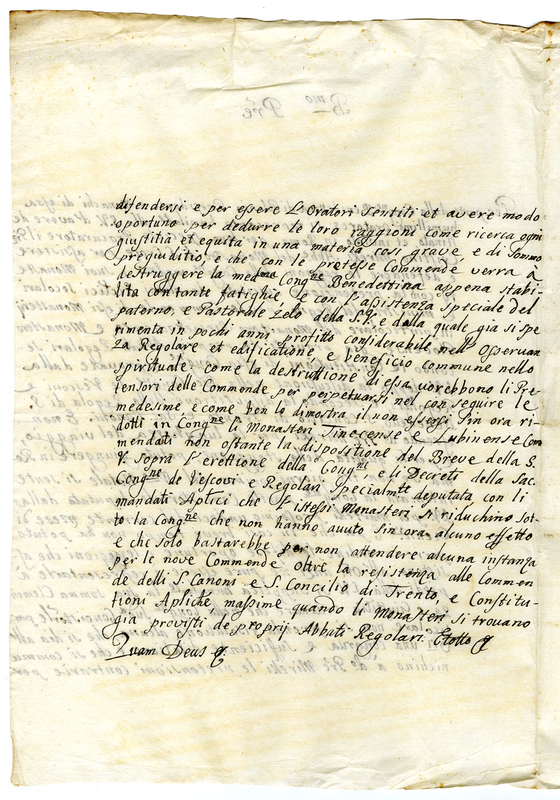 difendersi e per essere L'Oratori sentiti et avere modo
oportuno per dedurre le loro raggioni come ricerca ogni
giustitia et equità in una materia così grave, e di sommo
pregiuditio, e che con le protese Commende verrà à
destruggere la med.ma Cong.ne Benedettina appena stabi-
lita con tante fatighe, e con l'assistenza speciale del
paterno, e Pastorale zelo della S.V. e dalla quale già si spe
rimenta in pochi anni profitto considerabile nell'Osservan
za Regolare et edificatione, e beneficio commune nello
spirituale come la destruttione di essa vorebbono li Pre
tensori delle Commende per perpetuarsi nel conseguire le
medesime, e come ben lo dimostra il non essersi sin ora ri-
dotti in Cong.ne li Monasteri Tinecense e Lubinense Com
mendati non ostante la dispositione del Breve della S.
V. sopra l'erettione della Cong.ne, e li Decreti della Sac.
Cong.ne de Vescovi e Regolari specialmte deputata con li
mandati Aplici che l'istessi Monasteri si riduchino sot-
to la Cong.ne che non hanno avuto sin ora alcuno effetto
e che solo bastarebbe per non attendere alcuna instanza
per le nove Commende oltre la resistenza alle Commen
de delli S. Canoni e S. Concilio di Trento, e Constitu-
tioni Apliche massime quando li Monasteri si trouano
già provisti de proprij Abbati Regolari. Etotto
Quam Deus